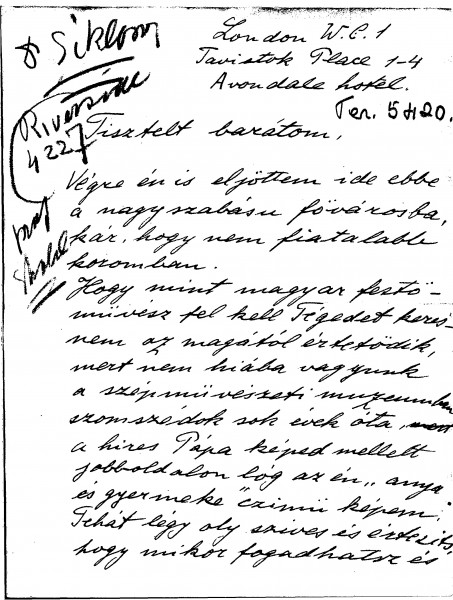 Siklosy
London W.C.1
Tavistok Place 1-4
Avondale hotel.
Riverside
4227
Ter. 5420.
Tisztelt barátom,
Végre én is eljöttem ide ebbe
a nagyszabásu fővárosba,
kár, hogy nem fiatalabb
koromban.
Hogy mint magyar festő-
művész fel kell Tégedet keres-
nem az magától értetődik,
mert nem hiába vagyunk
a szépművészeti muzeumban
szomszédok sok évek óta,
a hires Pápa képed mellett
jobboldalon lóg az én „anya
és gyermeke" czimü képem.
Tehát légy oly szives és értesits,
hogy mikor fogadhatsz és